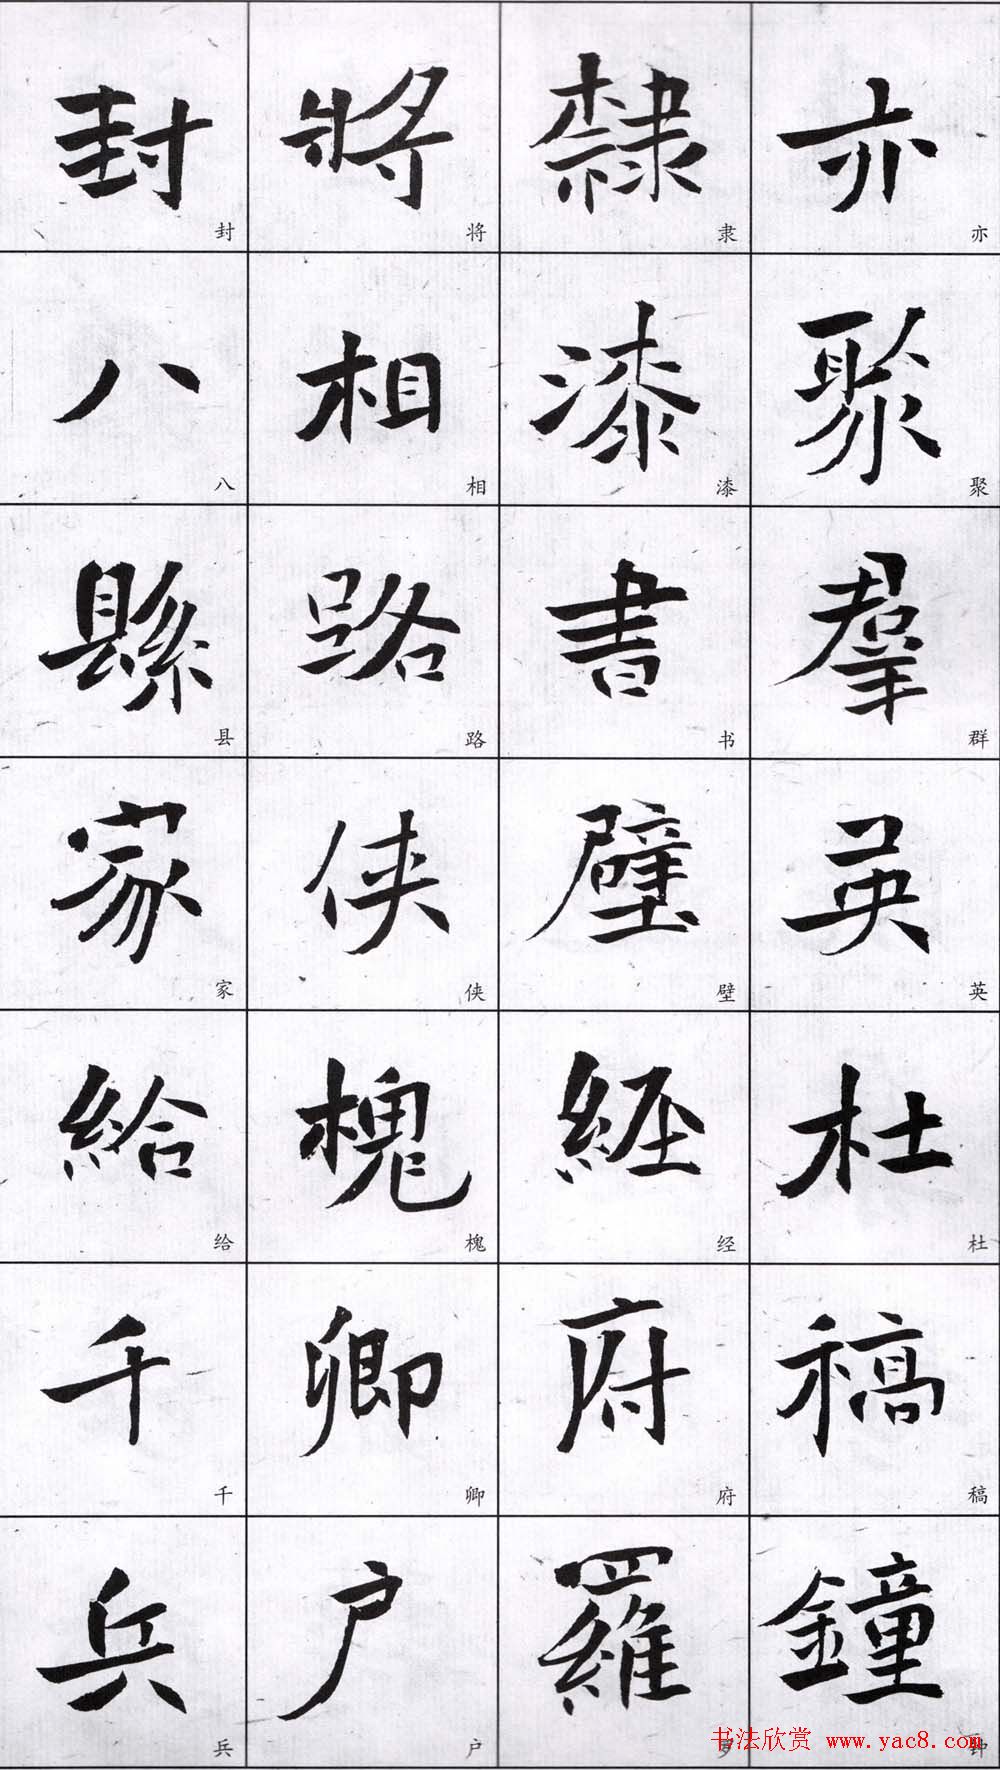 亦聚羣英杜稿鐘
亦聚群英杜稿钟
隸漆書壁經府羅
隶漆书壁经府罗
將相路俠槐卿户
将相路侠槐卿户
封八縣家給千兵
封八县家给千兵
书法欣赏 www.yac8.com